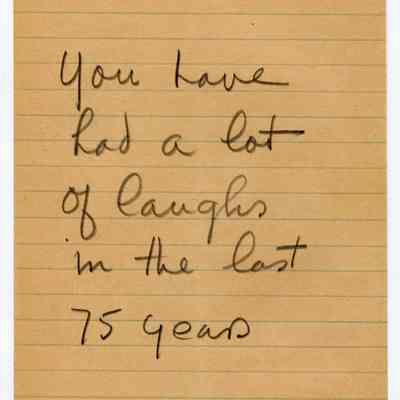 You have
had a lot
of laughs
in the last
75 years